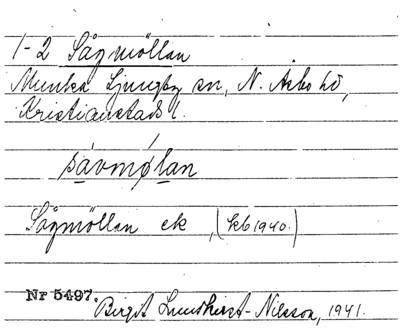 1-2 Sågmöllan
Munka Ljungby sn, N. Åsbo hd,
Kristianstads l.
såvmø̀lan
Sågmöllan ek , (kb 1940.)
Nr 5497.
Birgit Lundkvist-Nilsson, 1941.